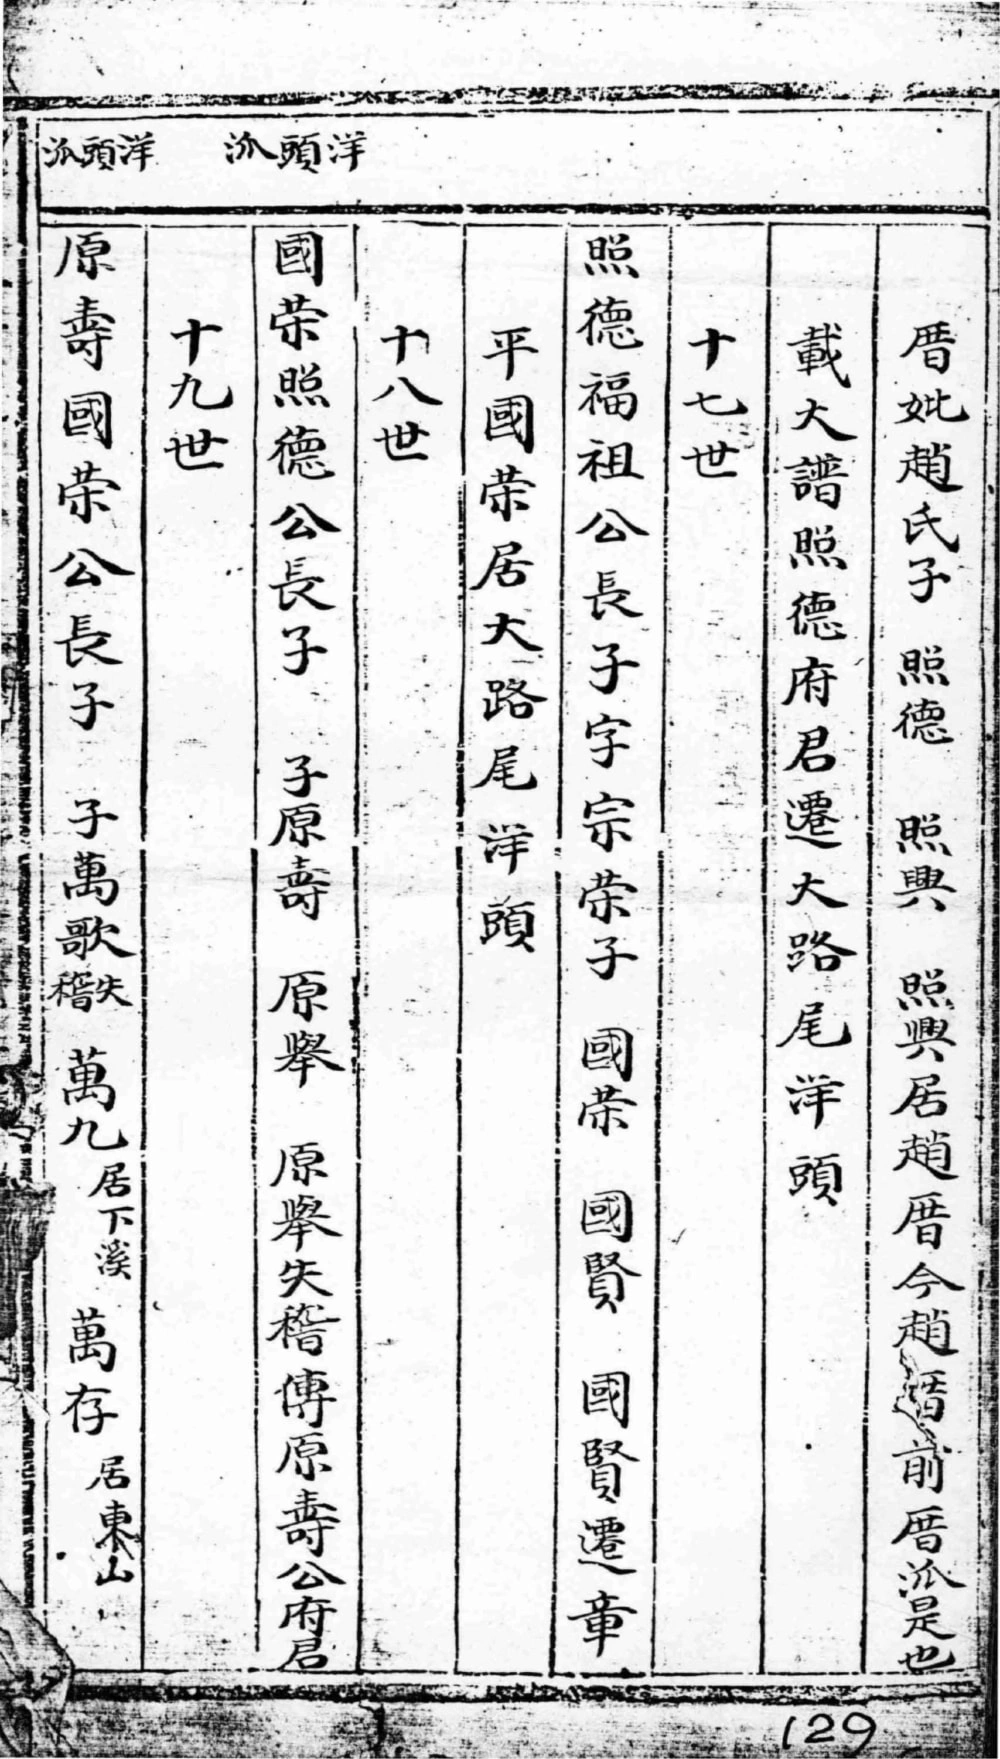 洋頭派
洋頭派
厝妣趙氏子 照德 照興 照興居趙厝今趙厝前厝派是也
載大譜照德府君遷大路尾洋頭
十七世
照德福祖公長子字宗荣子 國荣 國賢 國賢遷章
平國荣居大路尾洋頭
十八世
國荣照德公長子 子原壽 原舉 原舉失稽傳原壽公府君
十九世
原壽國荣公長子 子萬歌失稽 萬九居下溪 萬存居東山
129